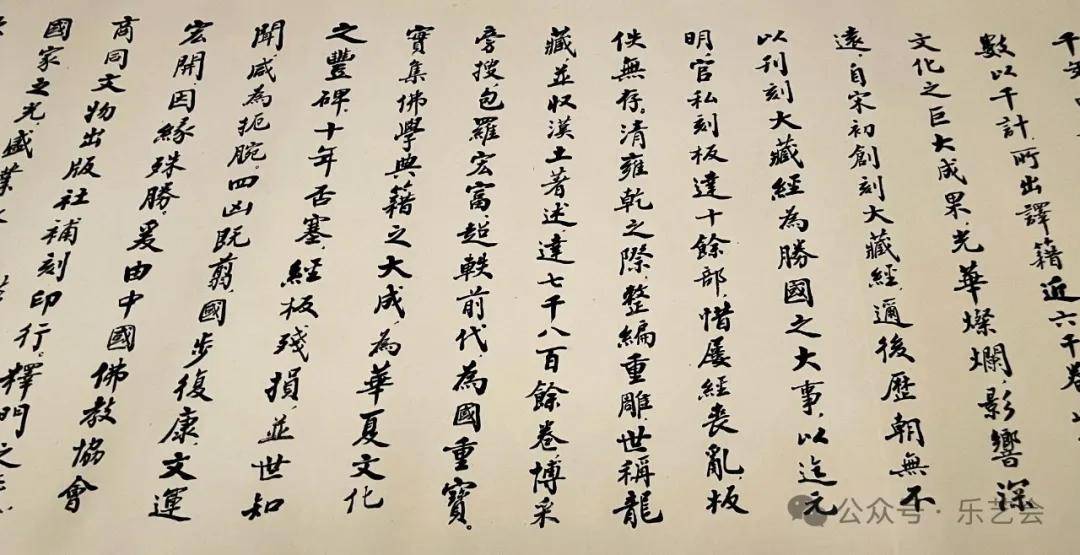 數以千計所出譯籍近六千卷
文化之巨大成果光華燦爛影響深
遠自宋初創刻大藏經邇後歷朝無不
以刊刻大藏經為勝國之大事以迄元
明官私刻板達十餘部惜屢經喪亂板
佚無存清雍乾之際整編重雕世稱龍
藏並収漢土著述達七千八百餘卷博采
旁搜包羅宏富超軼前代為國重寶。
實集佛學典籍之大成為華夏文化
之豐碑十年否塞經板殘損並世知
聞咸為扼腕四凶既翦國步復康文運
宏開因緣殊勝爰由中國佛教協會
商同文物出版社補刻印行。釋門之
國家之光盛業
公众号·乐艺会